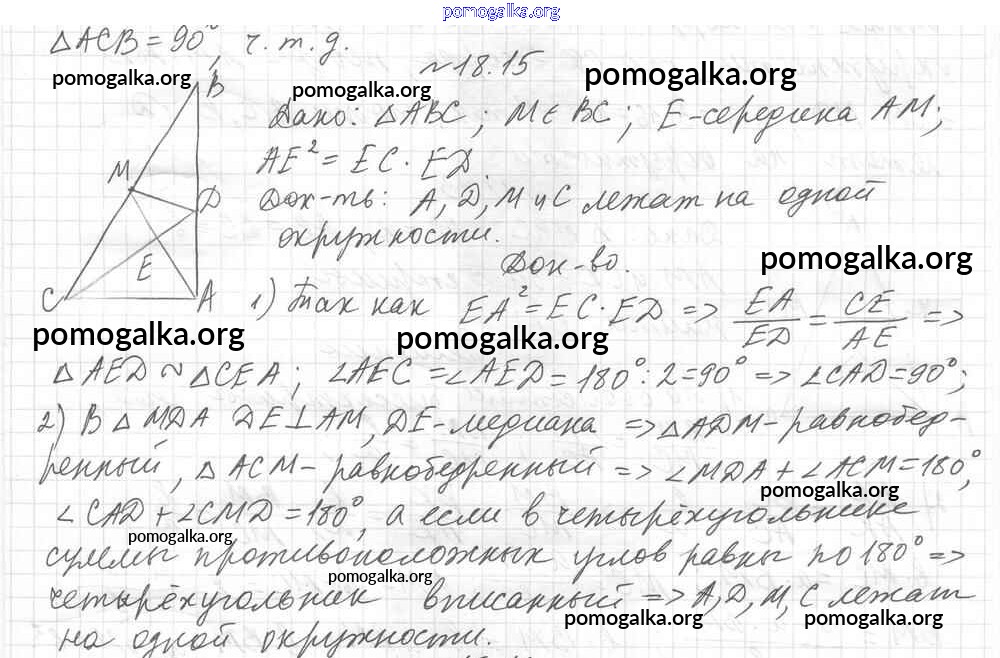 pomogalka.org
∆ACB = 90°, ч.т.д.
№18.15
pomogalka.org
pomogalka.org
pomogalka.org
B
M
D
E
C
A
Дано: ∆ABC; M∈BC; E-середина AM;
AE² = EC·ED.
Док-ть: A, D, M и C лежат на одной
окружности.
Док-во.
pomogalka.org
1) Так как EA² = EC·ED => EA/ED = CE/AE =>
pomogalka.org
pomogalka.org
∆AED ~ ∆CEA; ∠AEC = ∠AED = 180°:2 = 90° => ∠CAD = 90°;
2) В ∆MDA DE⊥AM, DE-медиана => ∆ADM-равнобед-
ренный, ∆ACM-равнобедренный => ∠MDA + ∠ACM = 180°,
pomogalka.org
∠CAD + ∠CMD = 180°, а если в четырёхугольнике
pomogalka.org
суммы противоположных углов равны по 180° =>
pomogalka.org
четырёхугольник вписанный => A, D, M, C лежат
pomogalka.org
pomogalka.org
на одной окружности.